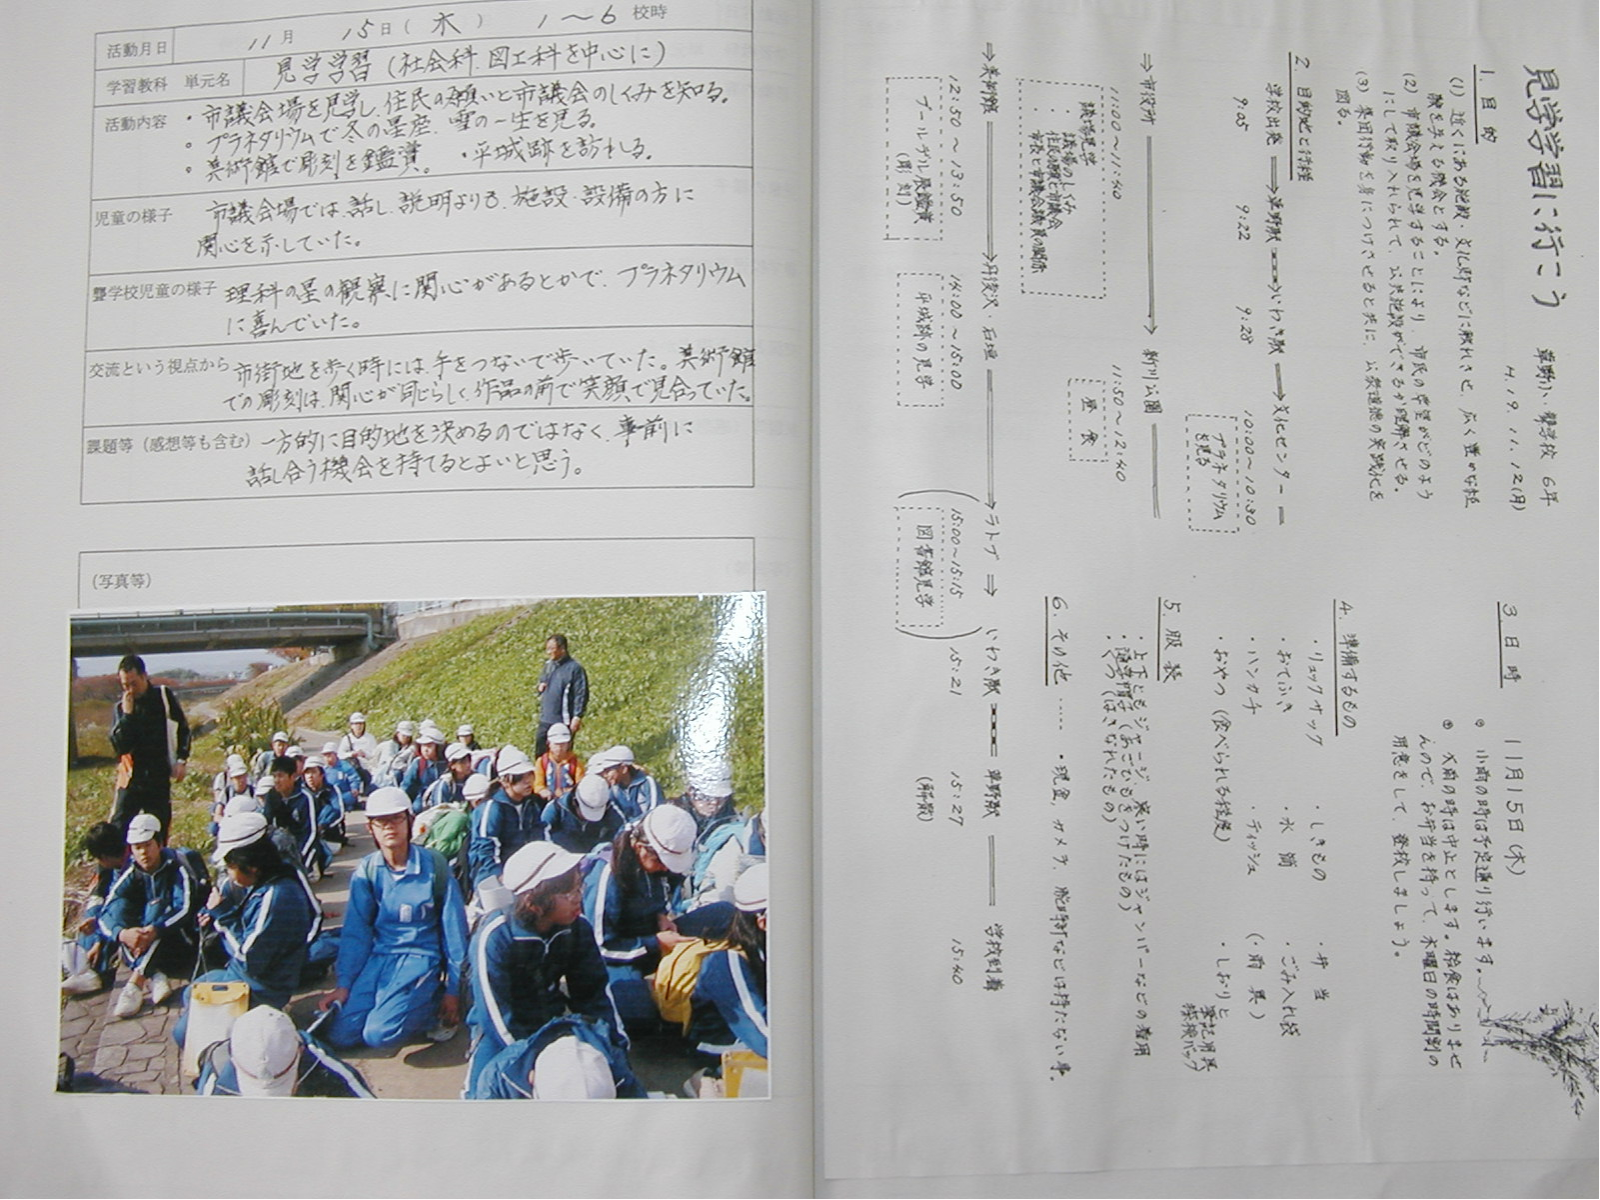 活動月日 11月 15日(木) 1～6 校時
学習教科 単元名 見学学習(社会科、図工科を中心に)
活動内容 ・市議会場を見学し、住民の願いと市議会のしくみを知る。
。プラネタリウムで冬の星座、雪の一生を見る。
。美術館で彫刻を鑑賞。 ・平城跡を訪れる。
児童の様子 市議会場では、話し、説明よりも、施設・設備の方に
関心を示していた。
聾学校児童の様子 理科の星の観察に関心があるとかで、プラネタリウム
に喜んでいた。
交流という視点から 市街地を歩く時には、手をつないで歩いていた。美術館
での彫刻は、関心が同じらしく、作品の前で笑顔で見合っていた。
課題等(感想等も含む) 一方的に目的地を決めるのではなく、事前に
話し合う機会を持てるとよいと思う。
(写真等)
見学学習に行こう 草野小・聾学校 6年
H.19.11.12(月)
1. 目的
(1) 近くにある施設・文化財などに触れさせ、広く豊かな経
験を与える機会とする。
(2) 市議会場を見学することにより、市民の希望がどのよう
にして取り入れられて、公共施設ができるか理解させる。
(3) 集団行動を身につけさせると共に、公衆道徳の実践化を
図る。
2. 目的地と行程
学校出発 ⇒ 草野駅 ⇒ いわき駅 ⇒ 文化センター
9:05 9:22 9:28 10:00～10:30
プラネタリウム
を見る
⇒ 市役所 ⇒ 新川公園
11:00～11:40 11:50～12:40
議場見学
・議場のしくみ
・住民の願いと市議会
市長と市議会議員の関係
昼食
⇒ 美術館 ⇒ 丹後沢・石垣 ⇒ ラトブ ⇒ いわき駅 草野駅 学校到着
12:50～13:50 14:00～15:00 (15:00～15:15) 15:21 15:27 15:40
ブールデル展鑑賞
(彫刻)
平城跡の見学
図書館見学
(解散)
3. 日時 11月15日(木)
◎ 小雨の時は予定通り行います。
◎ 大雨の時は中止とします。給食はありませ
んので、お弁当を持って、木曜日の時間割の
用意をして、登校しましょう。
4. 準備するもの
・リュックサック ・しきもの ・弁当
・おてふき ・水筒 ・ごみ入れ袋
・ハンカチ ・ティッシュ (・雨具)
・おやつ(食べられる程度) ・しおりと
筆記用具
探検バック
5. 服装
・上下ともジャージ、寒い時にはジャンパーなどの着用
・通学帽子(あごひもをつけたもの)
・くつ(はきなれたもの)
6. その他 …… ・現金、カメラ、腕時計などは持たない事。